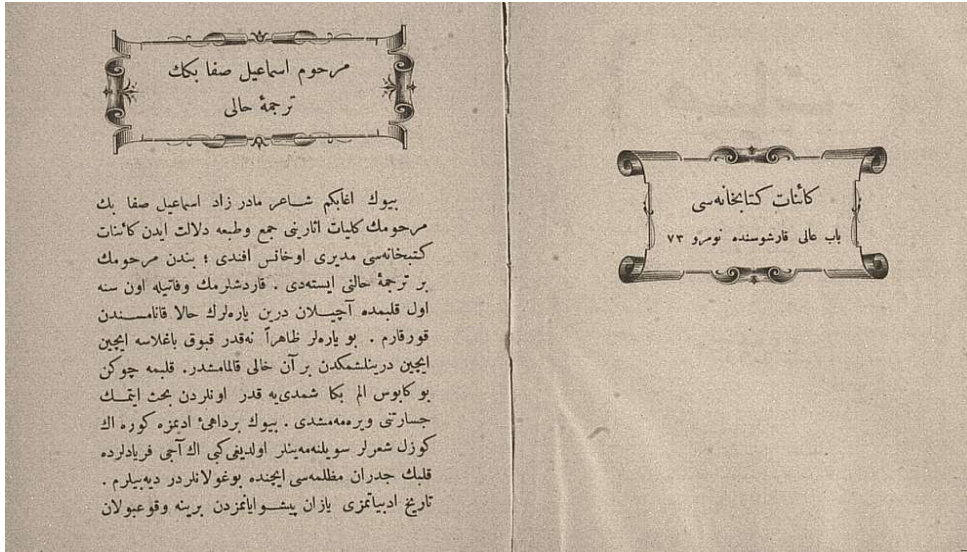 كائنات كتابخانه‌سى
باب عالى قارشوسنده نومرو ٧٣
مرحوم اسماعيل صفا بكك
ترجمهٔ حالى
بيوك اغابكم شاعر مادر زاد اسماعيل صفا بك
مرحومك كليات اثارينى جمع وطبعه دلالت ايدن كائنات
كتبخانه‌سى مديرى اوخانس افندى ؛ بندن مرحومك
بر ترجمهٔ حالنى ايسته‌دى . قاردشلرمك وفاتيله اون سنه
اول قلبمده آچيلان درين ياره‌لرك حالا قانامسندن
قورقارم . بو ياره‌لر ظاهراً نه‌قدر قبوق باغلاسه ايچين
ايچين درينلشمكدن بر آن خالى قالمامشدر. قلبمه چوكن
بو كابوس الم بكا شمدى‌يه قدر اونلردن بحث ايتمك
جسارتنى ويره‌مه‌مشدى . بيوك برداهىٔ ادبمزه كوره اك
كوزل شعرلر سويلنه‌مه‌ينلر اولديغى كبى اك آجى فريادلرده
قلبك جدران مظلمه‌سى ايچنده بوغولانلردر ديه‌بيلرم .
تاريخ ادبياتمزى يازان پيشوايانمزدن برينه وقوعبولان